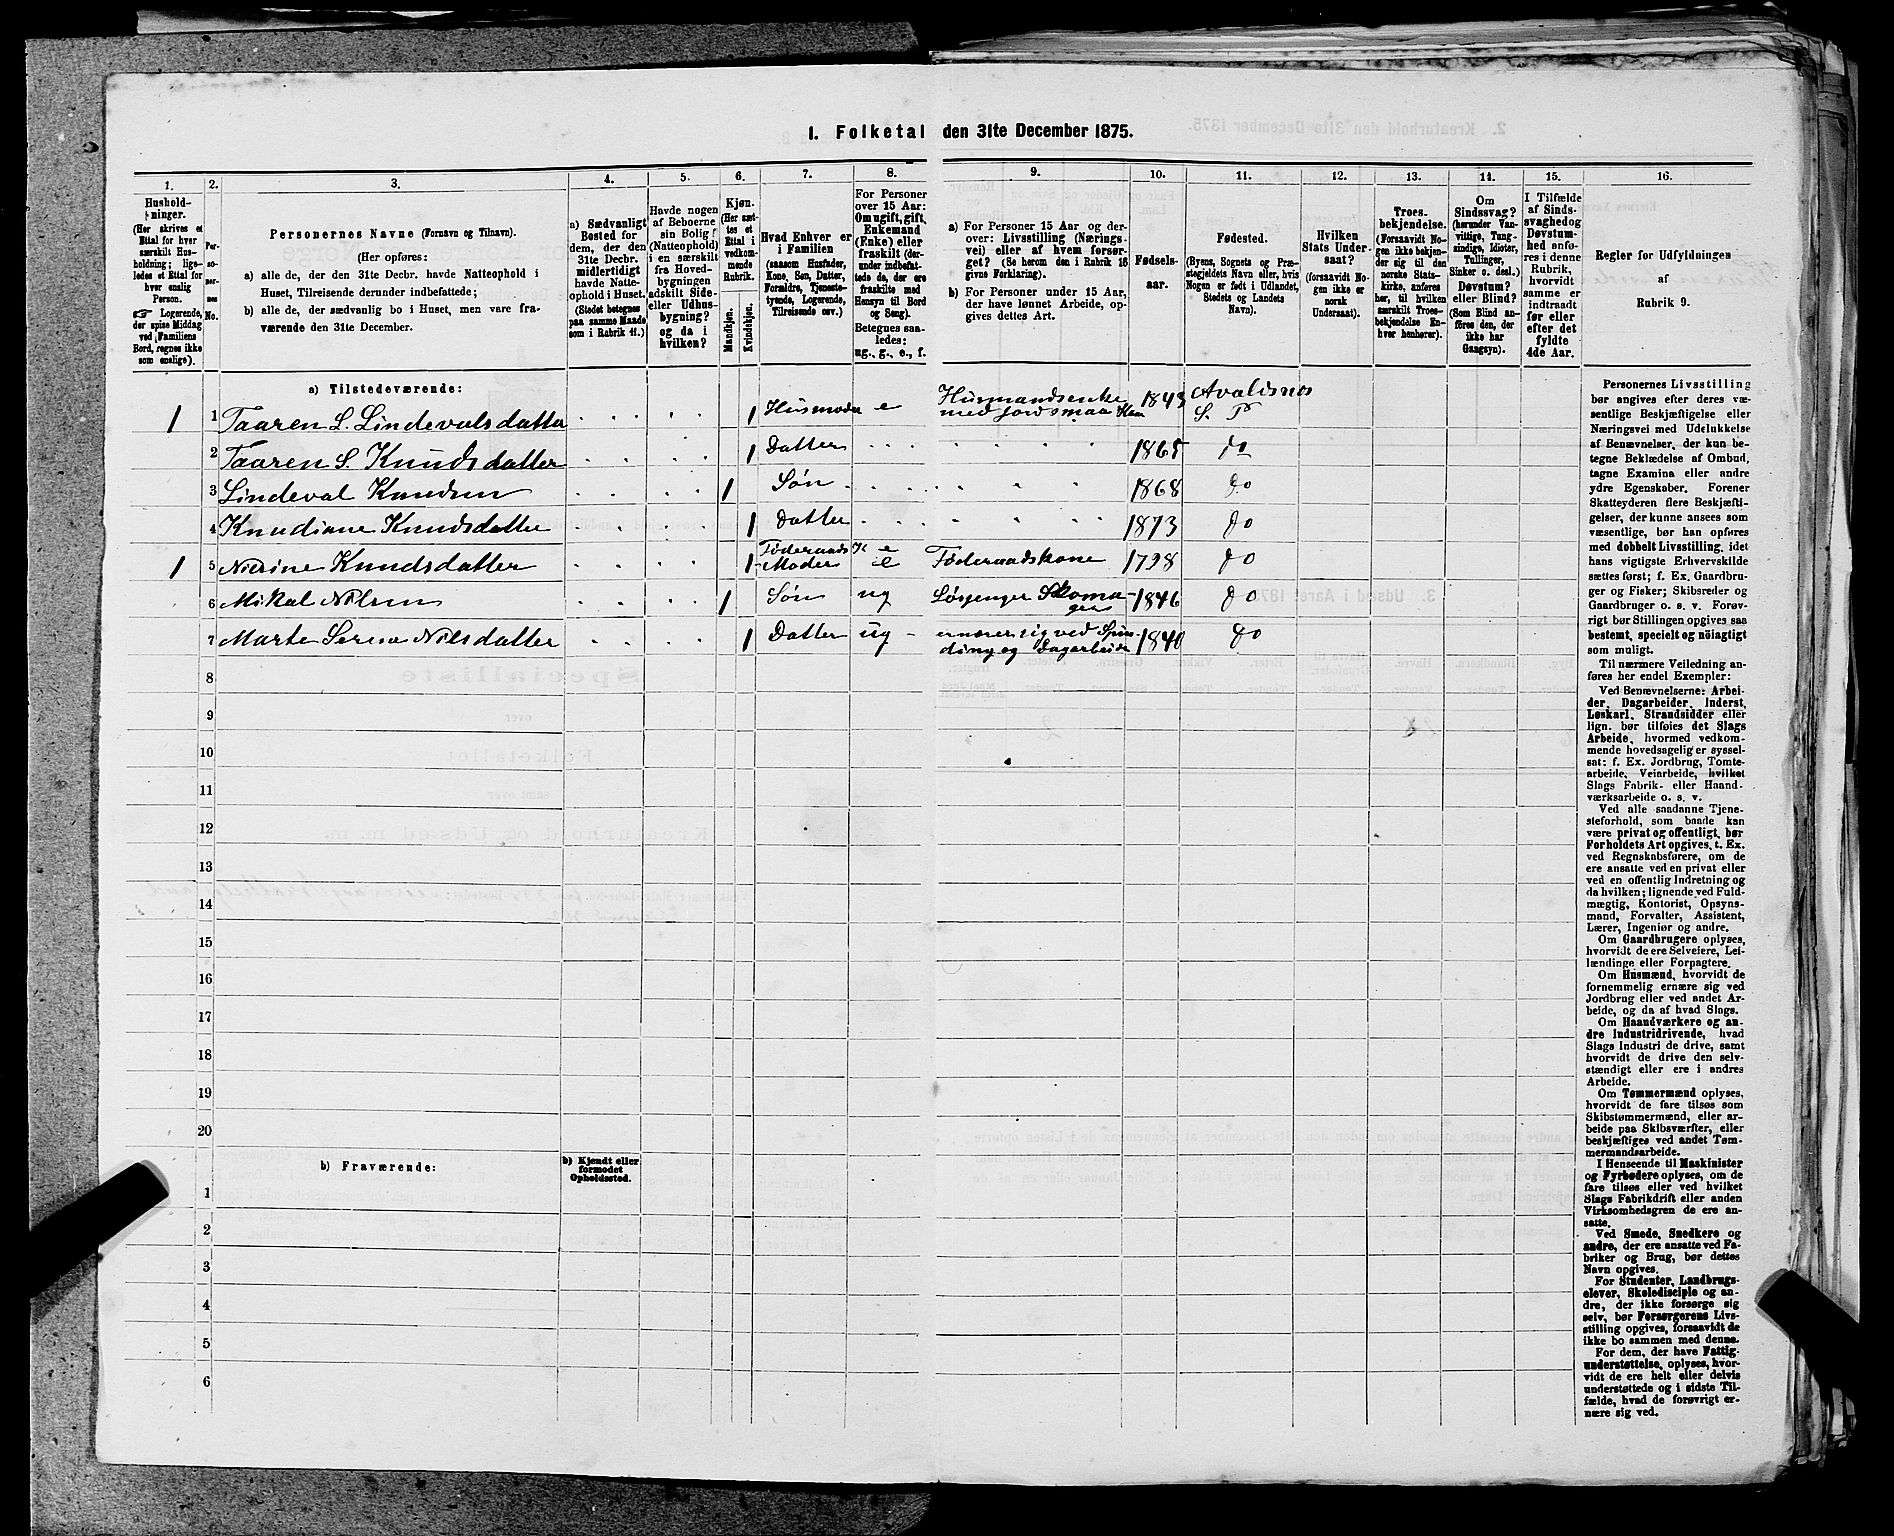 1. Folketal den 31te December 1875.
1.
Hushold-
ninger.
(Her skrives et
Ettal for hver
særskilt Hus-
holdning; lige-
ledes et Ettal for
hver enslig
Person.
Logerende,
der spise Middag
ved Familiens
Bord, regnes ikke
som enslige).
2.
Per-
so-
ner-
nes
No.
3.
Personernes Navne (Fornavn og Tilnavn).
(Her opføres:
a) alle de, der den 31te Decbr. havde Natteophold i
Huset, Tilreisende derunder indbefattede;
b) alle de, der sædvanlig bo i Huset, men vare fra-
værende den 31te December.
4.
a) Sædvanligt
Bosted for
dem, der den
31te Decbr.
midlertidigt
havde Natte-
ophold i Huset.
(Stedet betegnes
paa samme Maade
som i Rubrik 11.)
5.
Havde nogen
af Beboerne
sin Bolig
(Natteophold)
i en særskilt
fra Hoved-
bygningen
adskilt Side-
eller Udhus-
bygning?
og da i
hvilken?
6.
Kjøn.
(Her sæt-
tes et
Ettal i
vedkom-
mende
Rubrik.
Mandkjøn.
Kvindekjøn.
7.
Hvad Enhver er
i Familien
(saasom Husfader,
Kone, Søn, Datter,
Forældre, Tjeneste-
tyende, Logerende,
Tilreisende osv.)
8.
For Personer
over 15 Aar:
Om ugift, gift,
Enkemand
(Enke) eller
fraskilt (der-
under indbefat-
tede de, der ere
fraskilte med
Hensyn til Bord
og Seng).
Betegnes saa-
ledes:
ug., g., e., f.
9.
a) For Personer 15 Aar og der-
over: Livsstilling (Nærings-
vei) eller af hvem forsør-
get? (Se herom den i Rubrik 16
givne Forklaring).
b) For Personer under 15 Aar,
der have lønnet Arbeide, op-
gives dettes Art.
10.
Fødsels-
aar.
11.
Fødested.
(Byens, Sognets og Præ-
stegjeldets Navn eller, hvis
Nogen er født i Udlandet,
Stedets og Landets
Navn).
12.
Hvilken
Stats Under-
saat?
(forsaavidt No-
gen ikke er
norsk
Undersaat).
13.
Troes-
bekjendelse.
(Forsaavidt No-
gen ikke bekjen-
der sig til den
norske Stats-
kirke, anføres
her, til hvilken
særskilt Troes-
bekjendelse En-
hver henhører).
14.
Om
Sindssvag?
(herunder Van-
vittige, Tung-
sindige, Idioter,
Tullinger,
Sinker o. desl.)
Døvstum?
eller Blind?
(Som Blind an-
føres den, der
ikke har
Gangsyn).
15.
I Tilfælde
af Sinds-
svaghed og
Døvstum-
hed anfø-
res i denne
Rubrik,
hvorvidt
samme er
indtraadt
før eller
efter det
fyldte
4de Aar.
16.
Regler for Udfyldningen
af
Rubrik 9.
a) Tilstedeværende:
1 1 Taaren L. Lindevalsdatter 1 Husmoder e Husmandsenke med Jord smaa Kaar 1843 Avaldsnes S. P
2 Taaren S. Knudsdatter 1 Datter 1865 do
3 Lindeval Knudsen 1 Søn 1868 do
4 Knudiane Knudsdatter 1 Datter 1873 do
1 5 Nilsine Knudsdatter 1 Føderaads K Moder e Føderaadskone 1798 do
6 Mikal Nilsen 1 Søn ug Løsgjenger Skomager 1846 do
7 Marte Serine Nilsdatter 1 Datter ug ernærer sig ved Spinding og Dagarbeide 1840 do
8
9
10
11
12
13
14
15
16
17
18
19
20
b) Fraværende:
b) Kjendt eller
formodet
Opholdssted.
1
2
3
4
5
6
Personernes Livsstilling
bør angives efter deres væ-
sentlige Beskjæftigelse eller
Næringsvei med Udelukkelse
af Benævnelser, der kun be-
tegne Beklædelse af Ombud,
tagne Examina eller andre
ydre Egenskaber. Forener
Skatteyderen flere Beskjæfti-
gelser, der kunne ansees som
væsentlige, bør han opføres
med dobbelt Livsstilling, idet
hans vigtigste Erhvervskilde
sættes først; f. Ex. Gaardbru-
ger og Fisker; Skibsreder og
Gaardbruger o. s. v. Forøv-
rigt bør Stillingen opgives saa
bestemt, specielt og nøiagtigt
som muligt.
Til nærmere Veiledning an-
føres her endel Exempler:
Ved Benævnelserne: Arbei-
der, Dagarbeider, Inderst,
Løskarl, Strandsidder eller
lign. bør tilføies det Slags
Arbeide, hvormed vedkom-
mende hovedsagelig er syssel-
sat: f. Ex. Jordbrug, Tomte-
arbeide, Veiarbeide, hvilket
Slags Fabrik- eller Haand-
værksarbeide o. s. v.
Ved alle saadanne Tjene-
steforhold, som baade kan
være privat og offentligt, bør
Forholdets Art opgives, t. Ex.
ved Regnskabsførere, om de
ere ansatte ved en privat eller
ved en offentlig Indretning og
da hvilken; lignende ved Fuld-
mægtig, Kontorist, Opsyns-
mand, Forvalter, Assistent,
Lærer, Ingeniør og andre.
Om Gaardbrugere oplyses,
hvorvidt de ere Selveiere, Lei-
lændinge eller Forpagtere.
Om Husmænd, hvorvidt de
fornemmelig ernære sig ved
Jordbrug eller ved andet Ar-
beide, og da af hvad Slags.
Om Haandværkere og an-
dre Industridrivende, hvad
Slags Industri de drive, samt
hvorvidt de drive den selv-
stændigt eller ere i andres
Arbeide.
Om Tømmermænd oplyses,
hvorvidt de fare tilsøs som
Skibstømmermænd, eller ar-
beide paa Skibsværfter, eller
beskjæftiges ved andet Tøm-
mermandsarbeide.
I Henseende til Maskinister
og Fyrbødere oplyses, om de
fare tilsøs eller ved hvilket
Slags Fabrikdrift eller anden
Virksomhedsgren de ere an-
satte.
Ved Smede, Snedkere og
andre, der ere ansatte ved Fa-
briker og Brug, bør dettes
Navn opgives.
For Studenter, Landbrugs-
elever, Skoledisciple og an-
dre, der ikke forsørge sig
selv, bør Forsørgerens Livs-
stilling opgives, forsaavidt de
ikke bo sammen med denne.
For dem, der have Fattig-
understøttelse, oplyses, hvor-
vidt de ere helt eller delvis
understøttede og i sidste Til-
fælde, hvad de forøvrigt er-
nære sig ved.